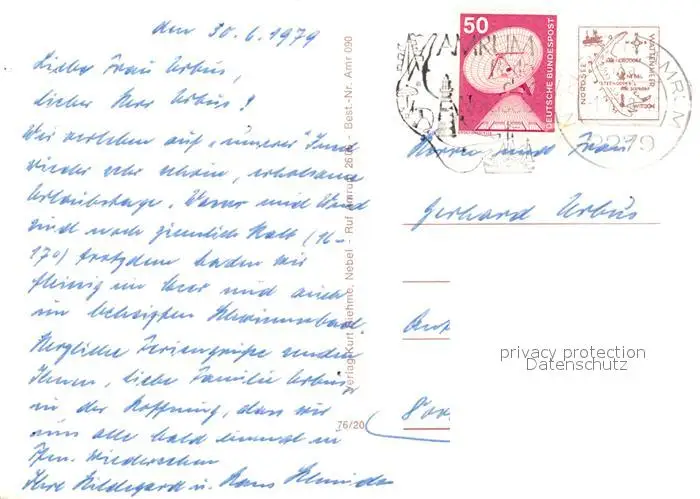 den 30.6.1979
Liebe Frau Urbus,
lieber Herr Urbus!
Wir verleben auf "unserer" Insel
wieder sehr schöne, erholsame
Urlaubstage. Wasser und Wind
sind noch ziemlich kalt (16-
17°) trotzdem baden wir
fleißig im Meer und auch
im beheizten Schwimmbad.
Herzliche Feriengrüße senden
Ihnen, liebe Familie Urbus
in der Hoffnung, dass wir
uns alle bald einmal in
wiedersehen
Ihre Hildegard u. Hans
Verlag Kurt Biehme, Nebel · Ruf Amrum - Best.-Nr. Amr 090
76/20
50
DEUTSCHE BUNDESPOST
AMRUM
WATTENMEER
NORDSEE
AMRUM
2279
Herrn und Frau
Gerhard Urbus
privacy protection
Datenschutz